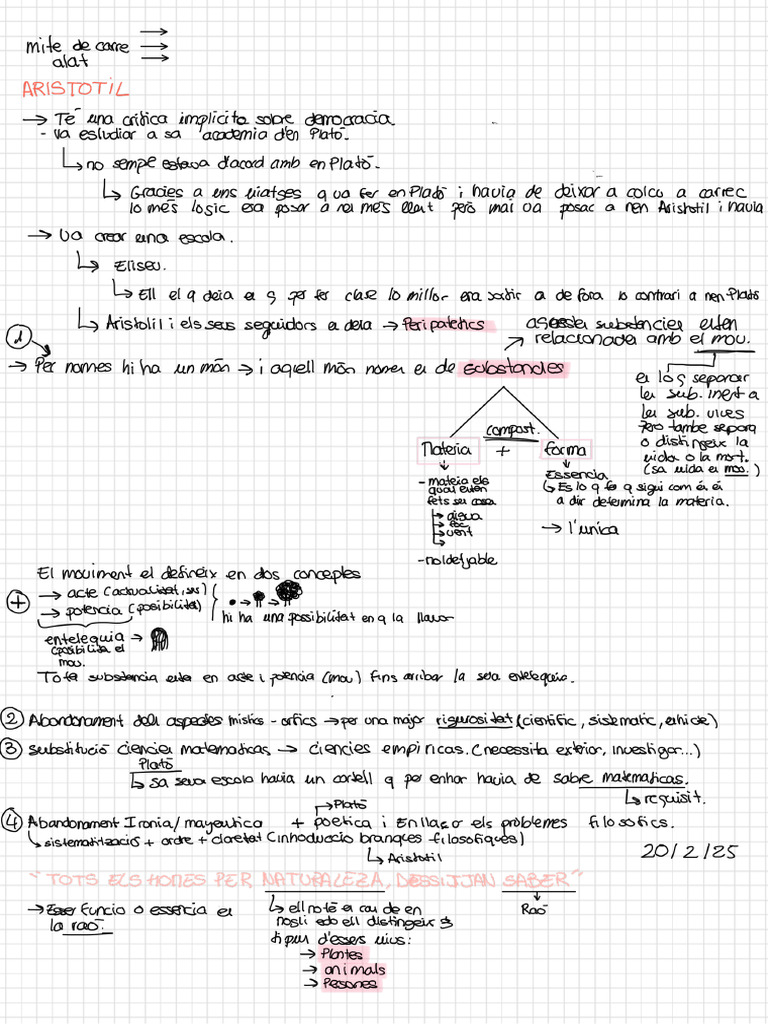 mite de carre →
alat →
ARISTOTIL
→ Té una critica implicita sobre democracia
- va estudiar a sa academia d'en Plató.
↳ no sempe estava d'acord amb en Plató.
↳ Gracies a uns viatges q va fer en Plató i havia de deixar a colcu a carrec
lo més logic era posar a nel més llest però mai va posar a nen Aristotil i havia
→ Va crear una escola.
↳ Eliseu.
↳ Ell el q deia es q per fer clase lo millor era sortir a de fora lo contrari a nen Plató
↳ Aristotil i els seus seguidors e deia → Peripatetics
aquestes substancies esten
relacionada amb el mou.
1
→ Per nomes hi ha un món → i aquell món nomer es de substancies
es lo q separar
les sub. inert a
les sub. vives
Però tambe separa
o distingeix la
vida o la mort.
(sa vida es mou.)
compost.
Materia + forma
- materia els
qual esten
fets ser cosa
→ aigua
→ foc
→ vent
- no desfjable
Essencia
↳ Es lo q fa q sigui com és és
a dir determina la materia.
→ l'unica
El moviment el defineix en dos conceptes
+ → acte (actualitat, )
→ potencia (posibilitat)
hi ha una possibilitat en q la llavor
entelequia →
(posibilita el
mou.
Tota substancia esta en acte i potencia (mou) fins arribar la seva entelequia.
2 Abandonament dels aspectes mistics - orfics → per una major rigurositat (cientific, sistematic, )
3 substitució ciencies matematicas → ciencies empiricas. (necessita exterior, investigar...)
Plató
↳ sa seva escola havia un cartell q per entrar havia de sabre matematicas.
↳ requisit.
→ Plató
4 Abandonament Ironia/mayeutica + poetica i Enllaço els problemes filosofics.
↳ sistematització + ordre + claretat (introduccio branques filosofiques)
↳ Aristotil
20/2/25
"TOTS ELS HOMES PER NATURALEZA, DESSITJAN SABER"
→ funcio o essencia es
la raó.
↳ ell noté es cau de en
ell distingeix 3
tipus d'essers vius:
→ Plantes
→ animals
→ Persones
↓
Raó